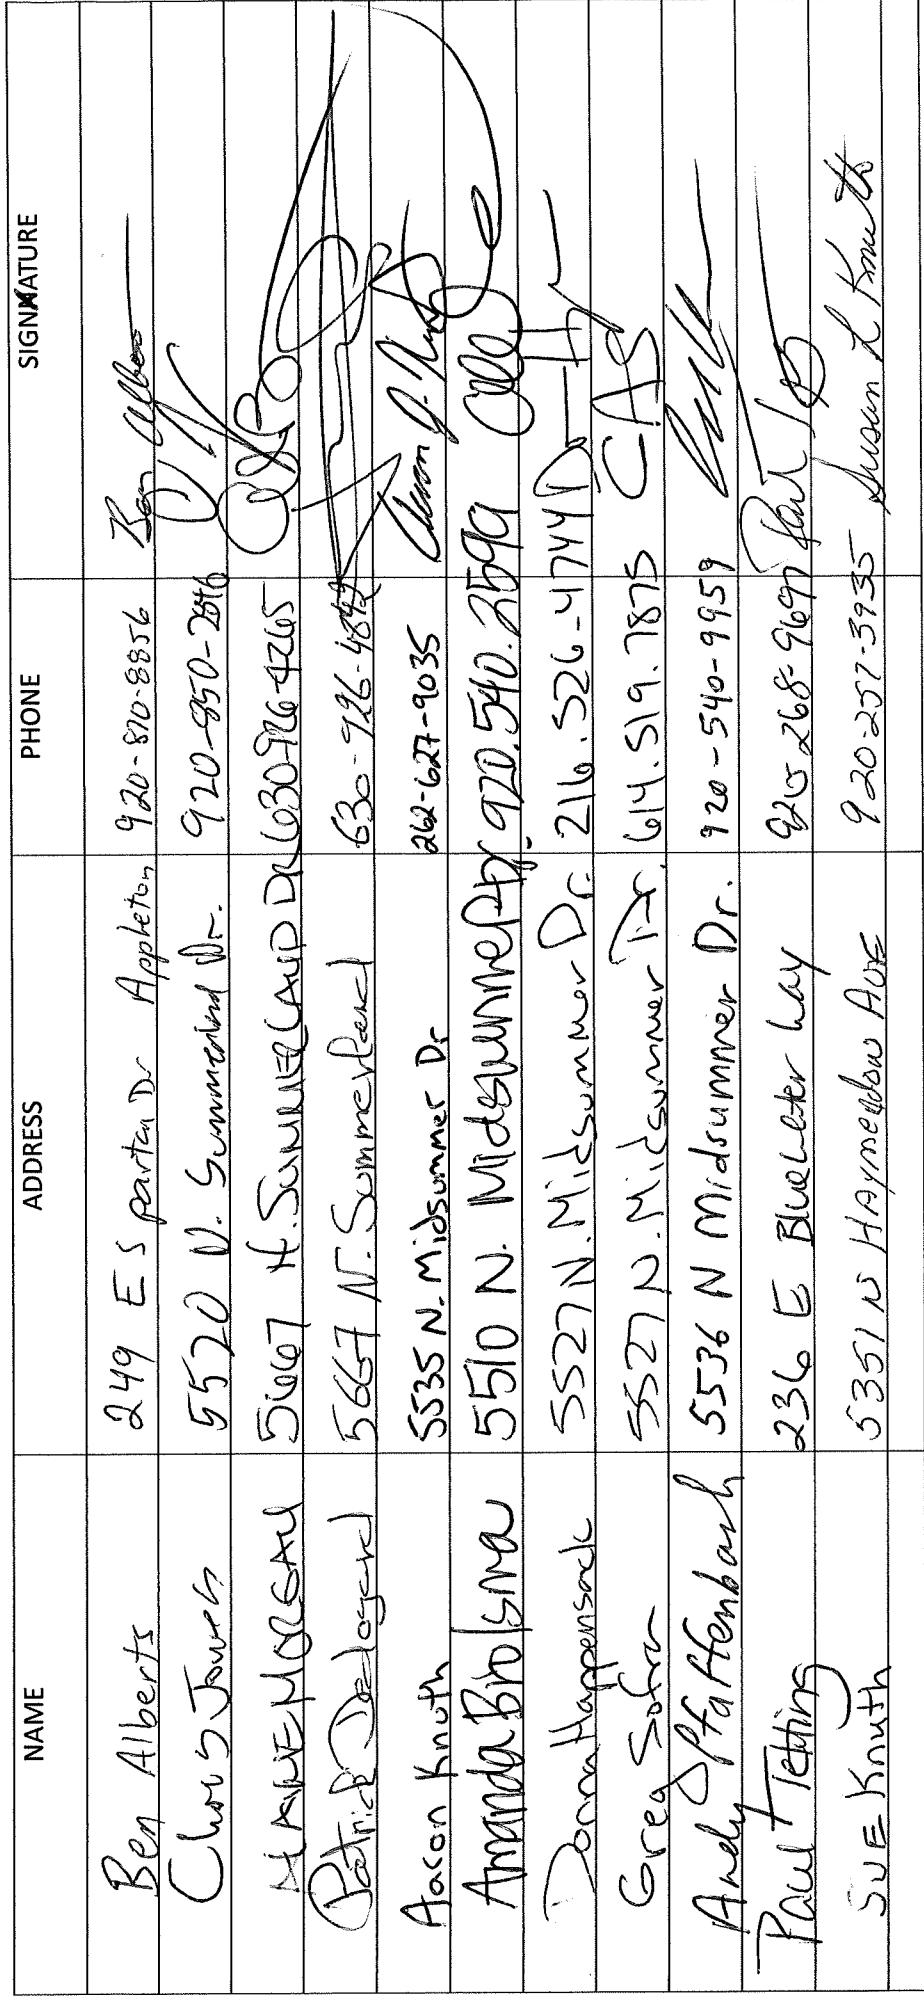 NAME ADDRESS PHONE SIGNATURE
Ben Alberts 249 E Spartan Dr Appleton 920-810-8856 Ben Albers
Chris 5520 N. Summerland Dr. 920-850-2046
MORGAN 5667 N. SUMMERLAND DR 630-926-4265
Patrick 5667 N. Summerland 630-926-4842
Aaron Knuth 5535 N. Midsummer Dr 262-627-9035
Amanda Bro 5510 N. Midsummer Dr. 920.540.2599
Donna Happensack 5527 N. Midsummer Dr. 216.526-4744
Greg 5527 N. Midsummer Dr. 614.519.7875
Andy Pfaffenbach 5536 N Midsummer Dr. 920-540-9959
Paul Tetting 236 E Bluewater Way 920-268-9697 Paul
SUE Knuth 5351 N HAYMEADOW AVE 920-257-3935 Susan L Knuth